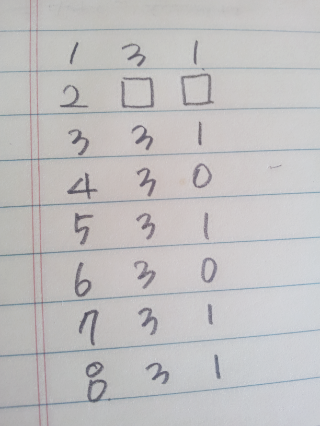 1 3 1
2 □ □
3 3 1
4 3 0
5 3 1
6 3 0
7 3 1
8 3 1